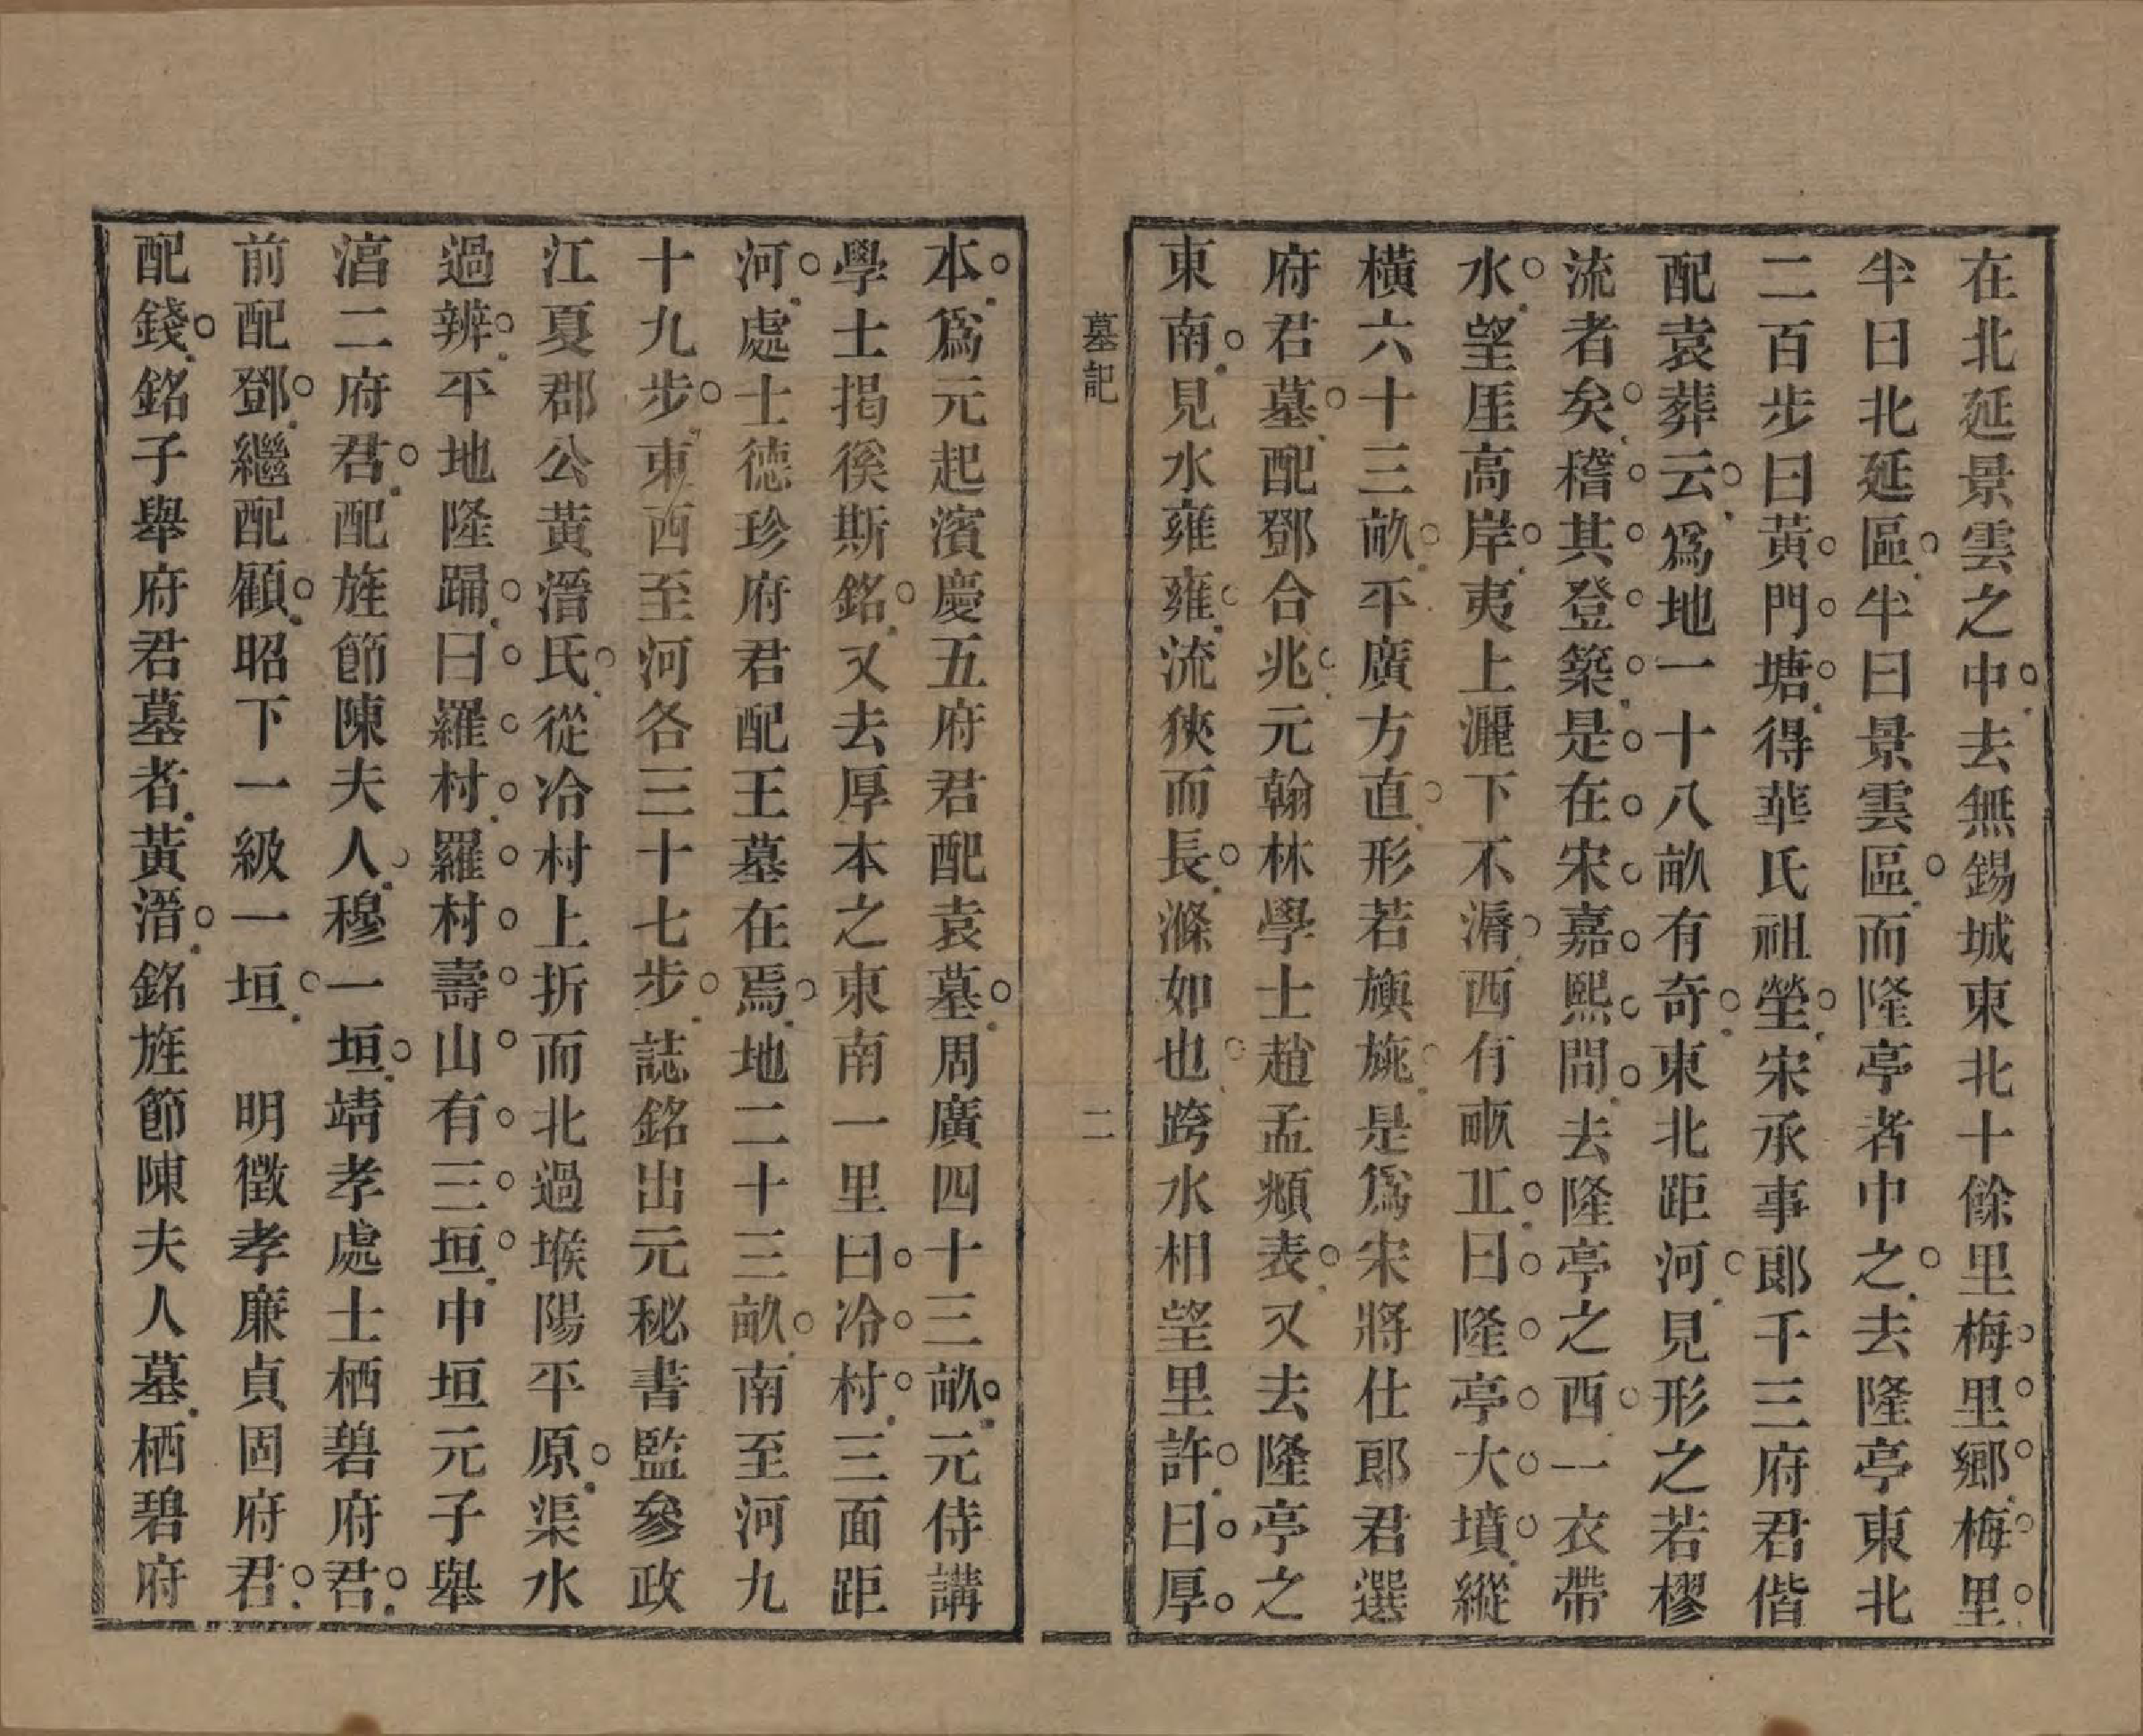 在北延景雲之中去無錫城東北十餘里梅里鄉梅里
半曰北延區半曰景雲區而隆亭者中之去隆亭東北
二百步曰黃門塘得華氏祖塋宋承事郎千三府君偕
配袁葬云爲地一十八畝有奇東北距河見形之若樛
流者矣稽其登築是在宋嘉熙間去隆亭之西一衣帶
水望厓高岸夷上灑下不漘西有畞正曰隆亭大墳縱
橫六十三畝平廣方直形若旟旐是爲宋將仕郎君選
府君墓配鄧合兆元翰林學士趙孟頫表又去隆亭之
東南見水雍雍流狹而長滌如也跨水相望里許曰厚
墓記
二
本爲元起濱慶五府君配袁墓周廣四十三畝元侍講
學士揭徯斯銘又去厚本之東南一里曰冷村三面距
河處士德珍府君配王墓在焉地二十三畝南至河九
十九步東西至河各三十七步誌銘出元秘書監參政
江夏郡公黃溍氏從冷村上折而北過堠陽平原渠水
過辨平地隆踊曰羅村羅村壽山有三垣中垣元子舉
滀二府君配旌節陳夫人穆一垣靖孝處士栖碧府君
前配鄧繼配顧昭下一級一垣　明徵孝廉貞固府君
配錢銘子舉府君墓者黃溍銘旌節陳夫人墓栖碧府